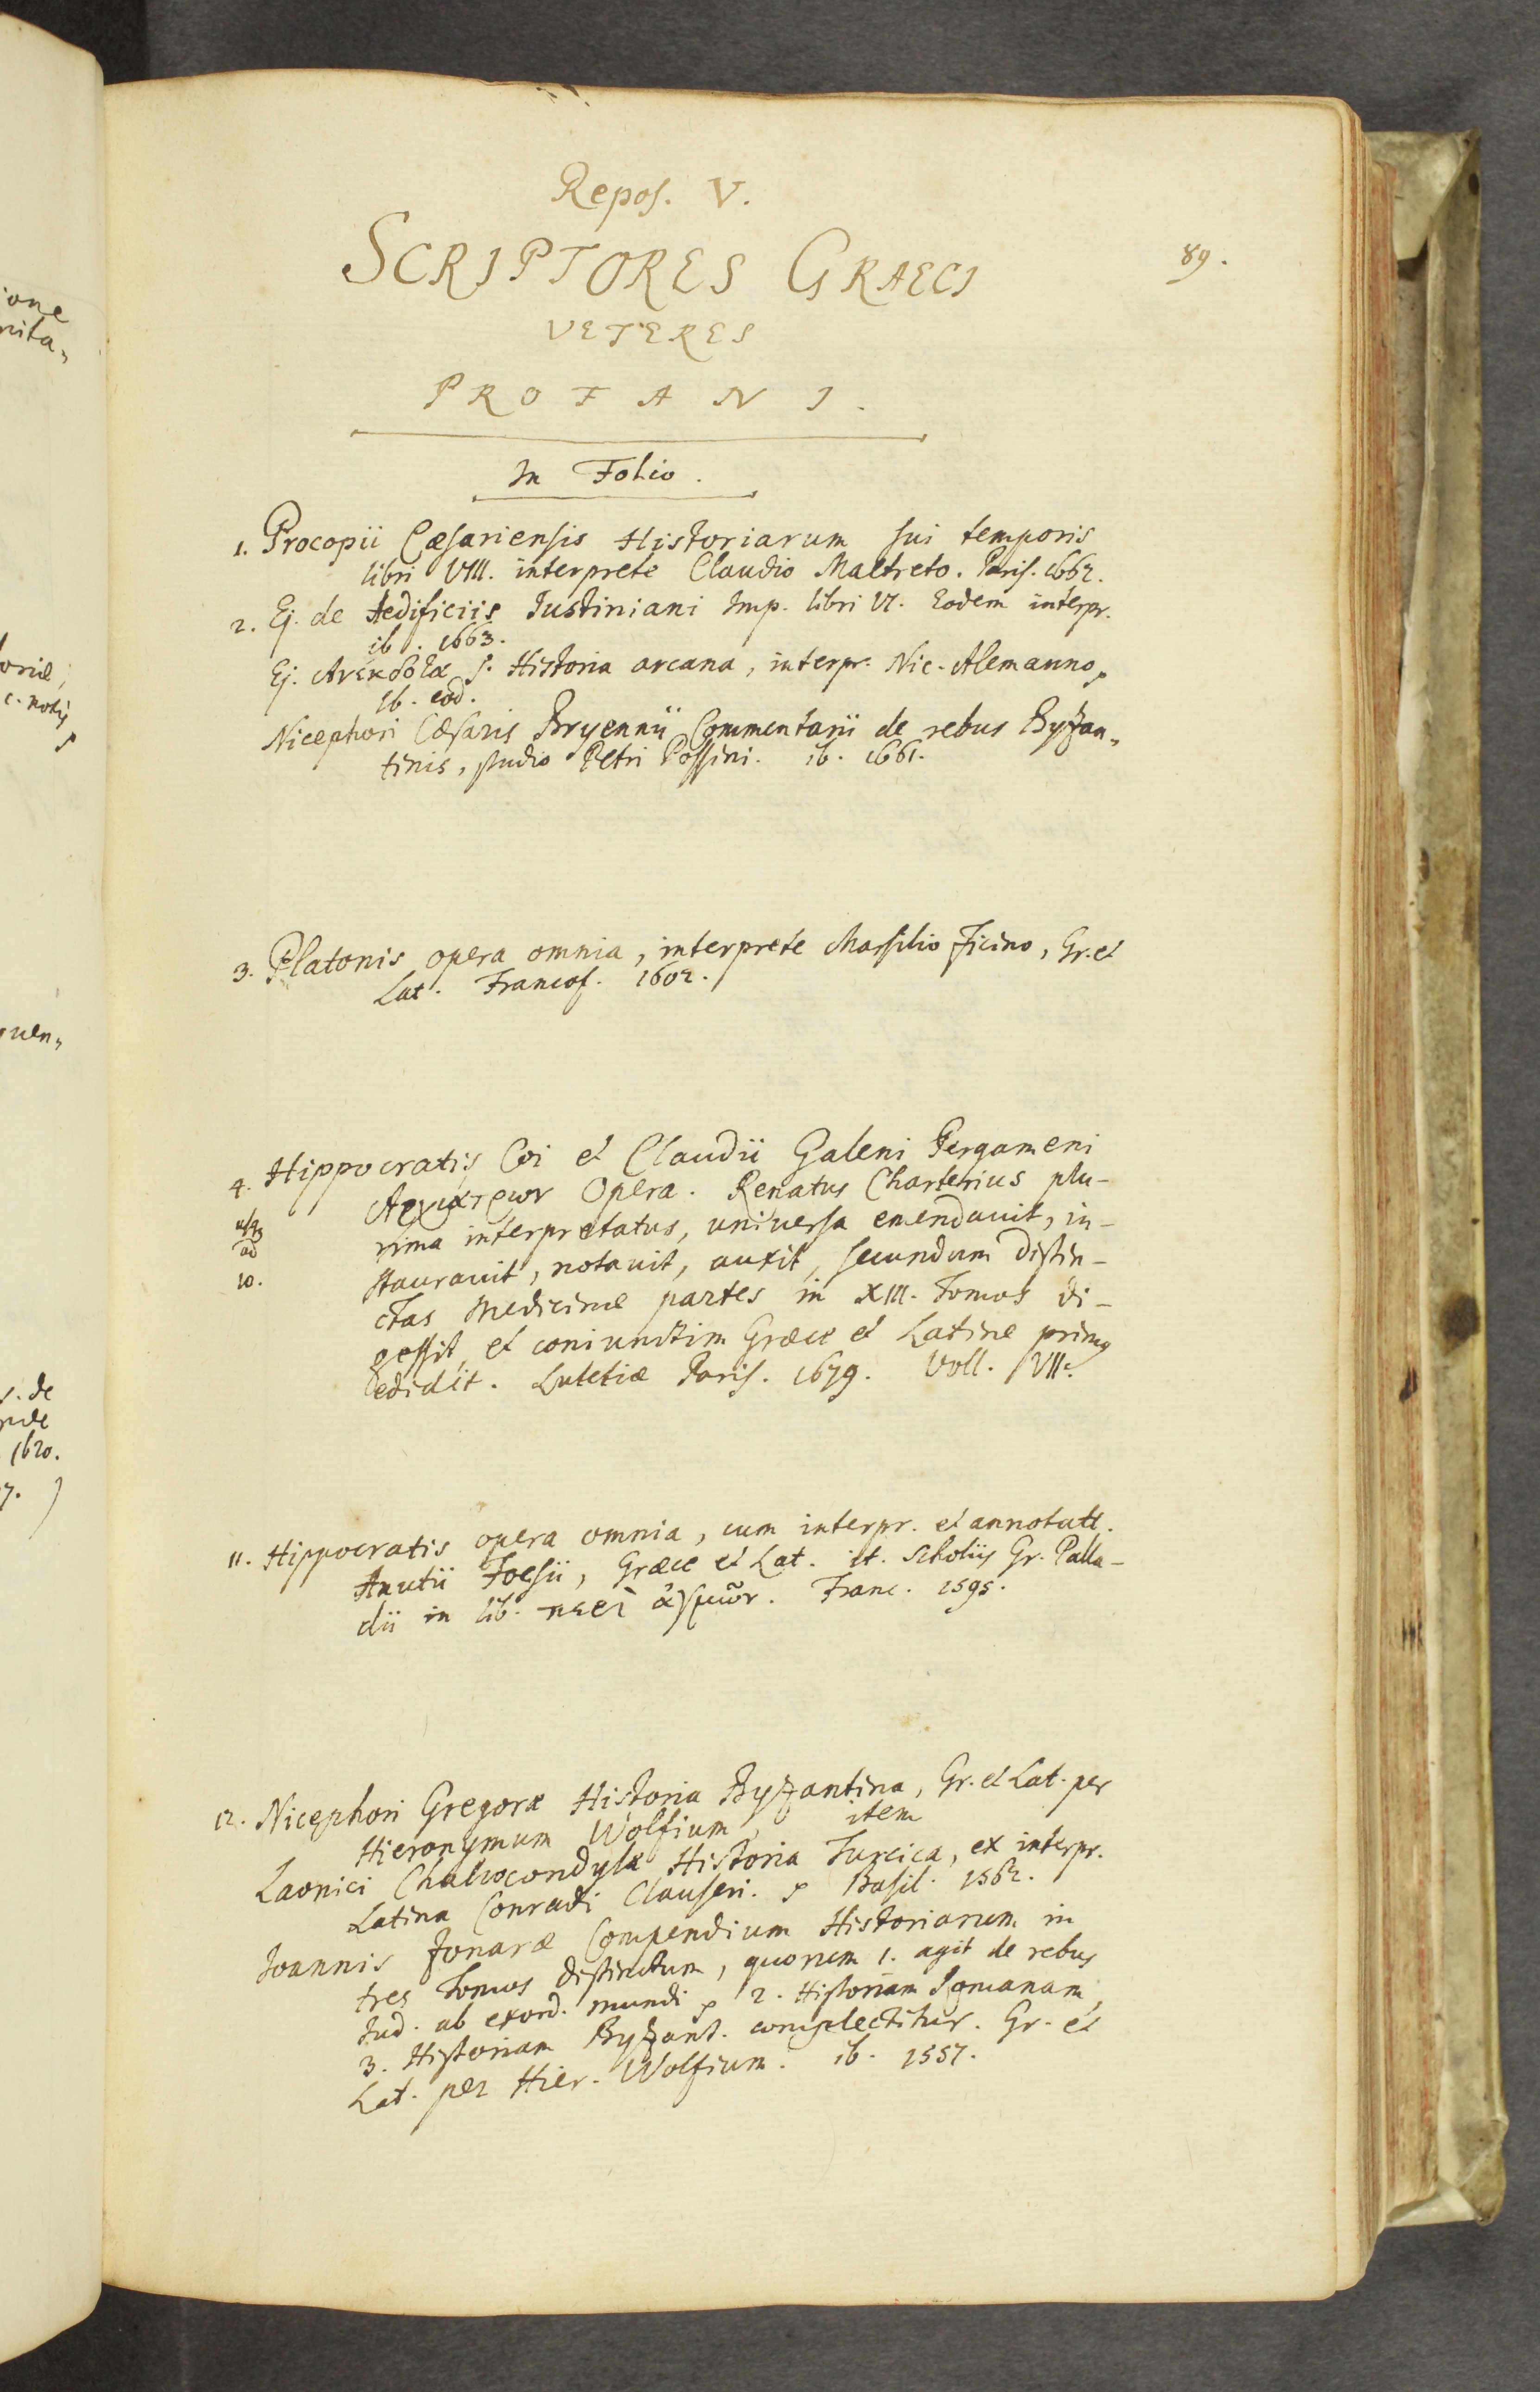 Repos. V.
89.
SCRIPTORES GRAECI
VETERES
PROFANI.
In Folio.
1. Procopii Cæsariensis Historiarum sui temporis
libri VIII. interprete Claudio Maltreto. Paris. 1662.
2. Ej. de Aedificiis Justiniani Imp. libri VI. Eodem interpr.
ib. 1663.
Ej. Ανεκδοτα s. Historia arcana, interpr. Nic. Alemanno,
Ib. eod.
Nicephori Cæsaris Bryennii Commentarii de rebus Byzan„
tinis, studio Petri Possini. ib. 1661.
3. Platonis opera omnia, interprete Marsilio Ficino, Gr. et
Lat. Francof. 1602.
4. Hippocratis Coi et Claudii Galeni Pergameni
Αρχιατρων Opera. Renatus Charterius plu-
usq
rima interpretatus, universa emendauit, in-
ad
10.
staurauit, notauit, auxit, secundum distin-
ctas Medicinæ partes in XIII. Tomos di-
gessit, et coniunctim Græce et Latine primus
edidit. Lutetiæ Paris. 1679. Voll. VII.
11. Hippocratis opera omnia, cum interpr. et annotatt.
Anutii Foesii, Græce et Lat. it. Scholiis Gr. Palla-
dii in lib. περὶ ἀγμῶν. Franc. 1595.
12. Nicephori Gregoræ Historia Byzantina, Gr. et Lat. per
Hieronymum Wolfium, item
Laonici Chalcocondylæ Historia Turcica, ex interpr.
Latina Conradi Clauseri. Basil. 1562.
Joannis Zonaræ Compendium Historiarum in
tres Tomos distinctum, quorum 1. agit de rebus
Jud. ab exord. mundi 2. Historiam Romanam,
3. Historiam Byzant. complectitur. Gr. et
Lat. per Hier. Wolfium. ib. 1557.